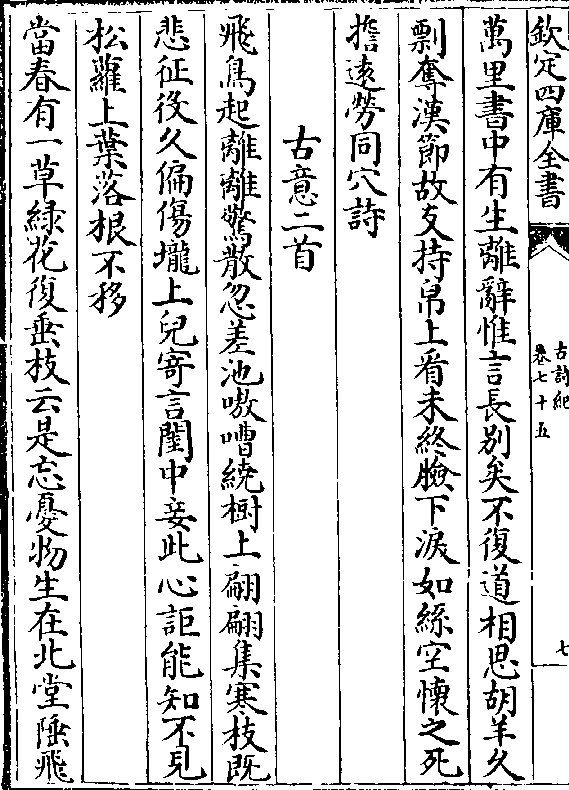 欽定四庫全書
古詩紀
卷七十五
七
萬里書中有生離辭惟言長别矣不復道相思胡羊久
剽奪漢節故支持帛上看未終臉下淚如絲空懷之死
擔遠勞同穴詩
古意二首
飛鳥起離離驚散忽差池嗷嘈繞樹上翩翩集寒枝既
悲征役久偏傷壠上兒寄言閨中妾此心詎能知不見
松蘿上葉落根不移
當春有一草綠花復垂枝云是忘憂物生在北堂陲飛